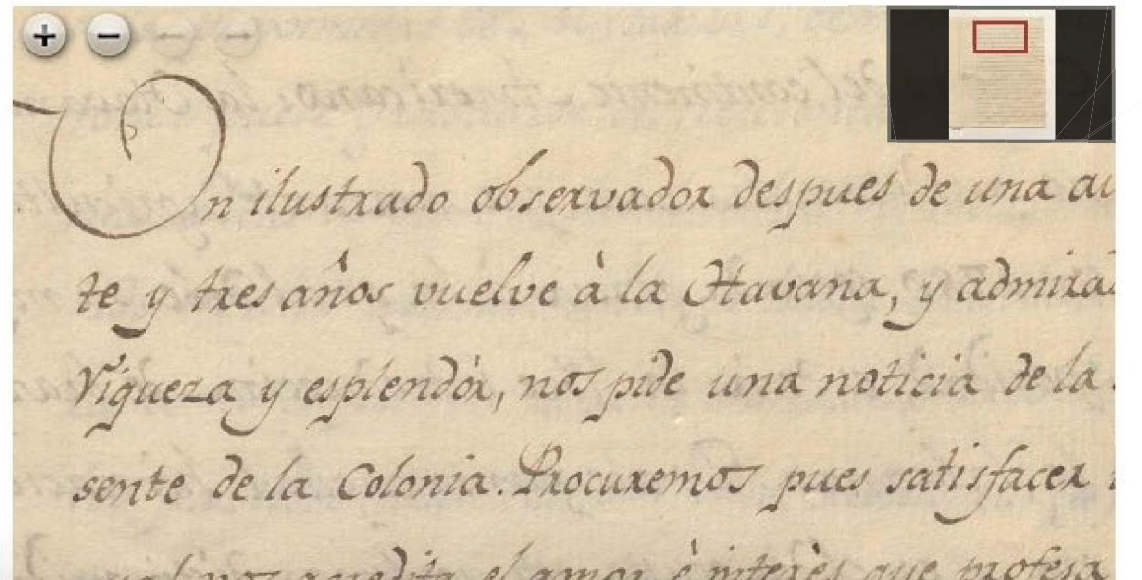 Un ilustrado observador despues de una
te y tres años vuelve à la Havana, y
Riqueza y esplendór, nos pide una noticia de la
sente de la Colonia. Procuremos pues satisfacer
nos acredita el amor è interès que profesa